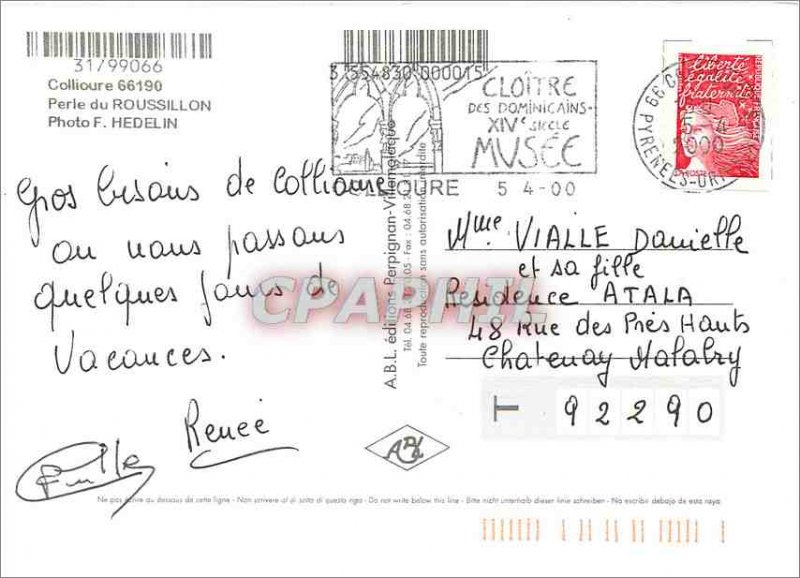 31/99066
Collioure 66190
Perle du ROUSSILLON
Photo F. HEDELIN
3 554830 000015
CLOÎTRE
DES DOMINICAINS-
XIVe SIECLE
MUSÉE
COLLIOURE 5 4-00
liberté
égalité
fraternité
RÉPUBLIQUE FRANÇAISE
LA POSTE
66 PYRENEES-OR
5-4
2000
Gros bisous de Collioure
ou nous passons
quelques jours de
Vacances.
Renée
A.B.L. éditions Perpignan-Villemolaque
Toute reproduction sans autorisation interdite
CPAPHIL
Mme VIALLE Danielle
et sa fille
Residence ATALA
48 Rue des Près Hauts
Chatenay Malabry
T 92290
Ne pas écrire au dessous de cette ligne - Non scrivere al di sotto di questa riga - Do not write below this line - Bitte nicht unterhalb dieser linie schreiben - No escribir debajo de esta raya